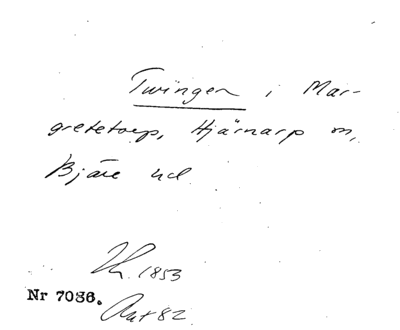 Twingen i Mar-
gretetorp, Hjärnarp sn,
Bjäre hd
1853
Nr 7036.
Ant 82